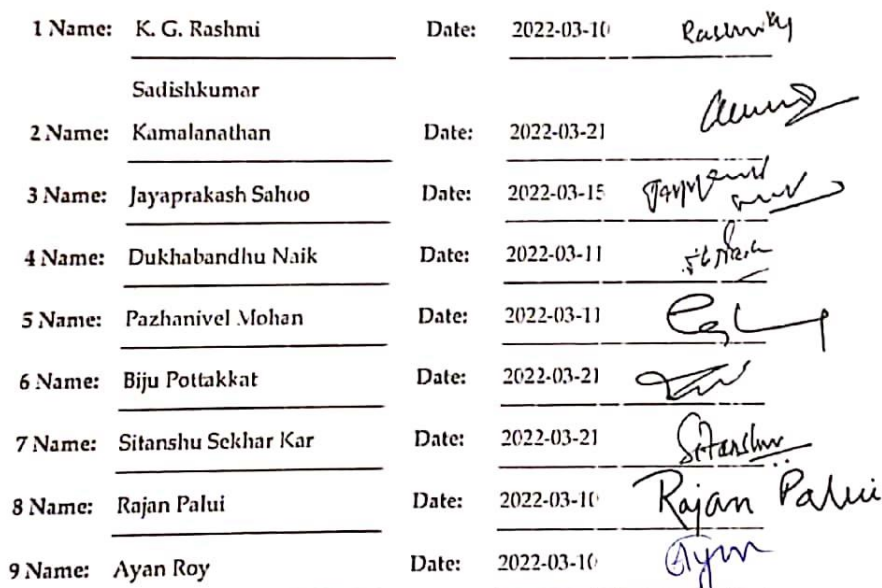 1 Name: K. G. Rashmi Date: 2022-03-10 Rashmi Kg
Sadishkumar
2 Name: Kamalanathan Date: 2022-03-21
3 Name: Jayaprakash Sahoo Date: 2022-03-15
4 Name: Dukhabandhu Naik Date: 2022-03-11
5 Name: Pazhanivel Mohan Date: 2022-03-11
6 Name: Biju Pottakkat Date: 2022-03-21
7 Name: Sitanshu Sekhar Kar Date: 2022-03-21 Sitanshu
8 Name: Rajan Palui Date: 2022-03-10 Rajan Palui
9 Name: Ayan Roy Date: 2022-03-10 Ayan